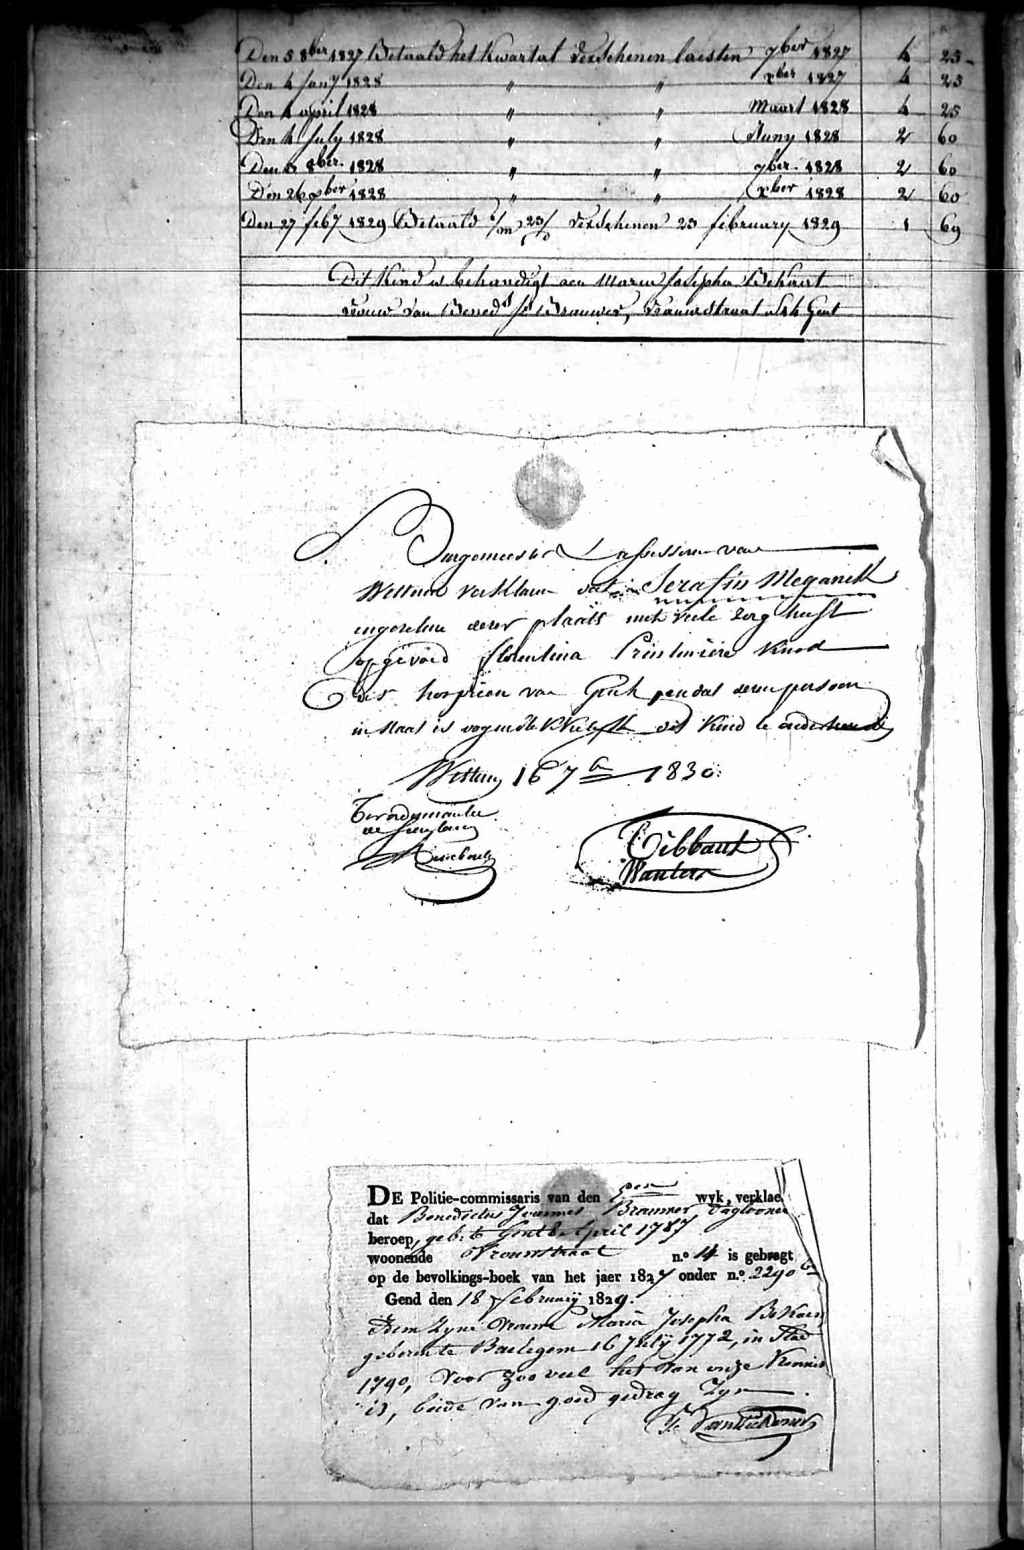 Den 5 8ber 1827 Betaald het kwartal verschenen laesten 7ber 1827 4 25
Den 4 Jany 1828 " " xber 1827 4 25
Den 4 april 1828 " " Maart 1828 4 25
Den 4 July 1828 " " Juny 1828 2 60
Den 8ber. 1828 " " 7ber. 1828 2 60
Den 26 xber 1828 " " xber 1828 2 60
Den 27 feby 1829 Betaald 23/ verschenen 23 february 1829 1 69
Dit Kind is behandigt aen Maria Josepha Bekaert
vrouw van Bened.t Js Brauwer, Vrauwstraat 14 Gent
Burgemeester & assessoren van
Wetteren verklaren dat Serafin Meganck
ingesetene dezer plaets met veele zorg heeft
opgevoed florentina Printemière Kind
des hospicen van Gend, en dat dezen persoon
in staat is dit Kind te onderhouden
Wetteren 16 7ber 1830.
Ter ordonnantie
Tibbaut
Wauters
DE Politie-commissaris van den 5den wyk, verklae
dat Benedictus Joannes Brauwer dagloner
beroep, geb. te Gent april 1787
woonende Vrouwstraat n.º 14 is gebragt
op de bevolkings-boek van het jaer 1827 onder n.º 2290
Gend den 18 february 1829.
Item zyne vrouw Maria Josepha Bekaer
geboren te Baelegem 16 July 1772, in Stad
1790, voor zoo veel het aan onze Kennis
is, beide van goed gedrag Zyn